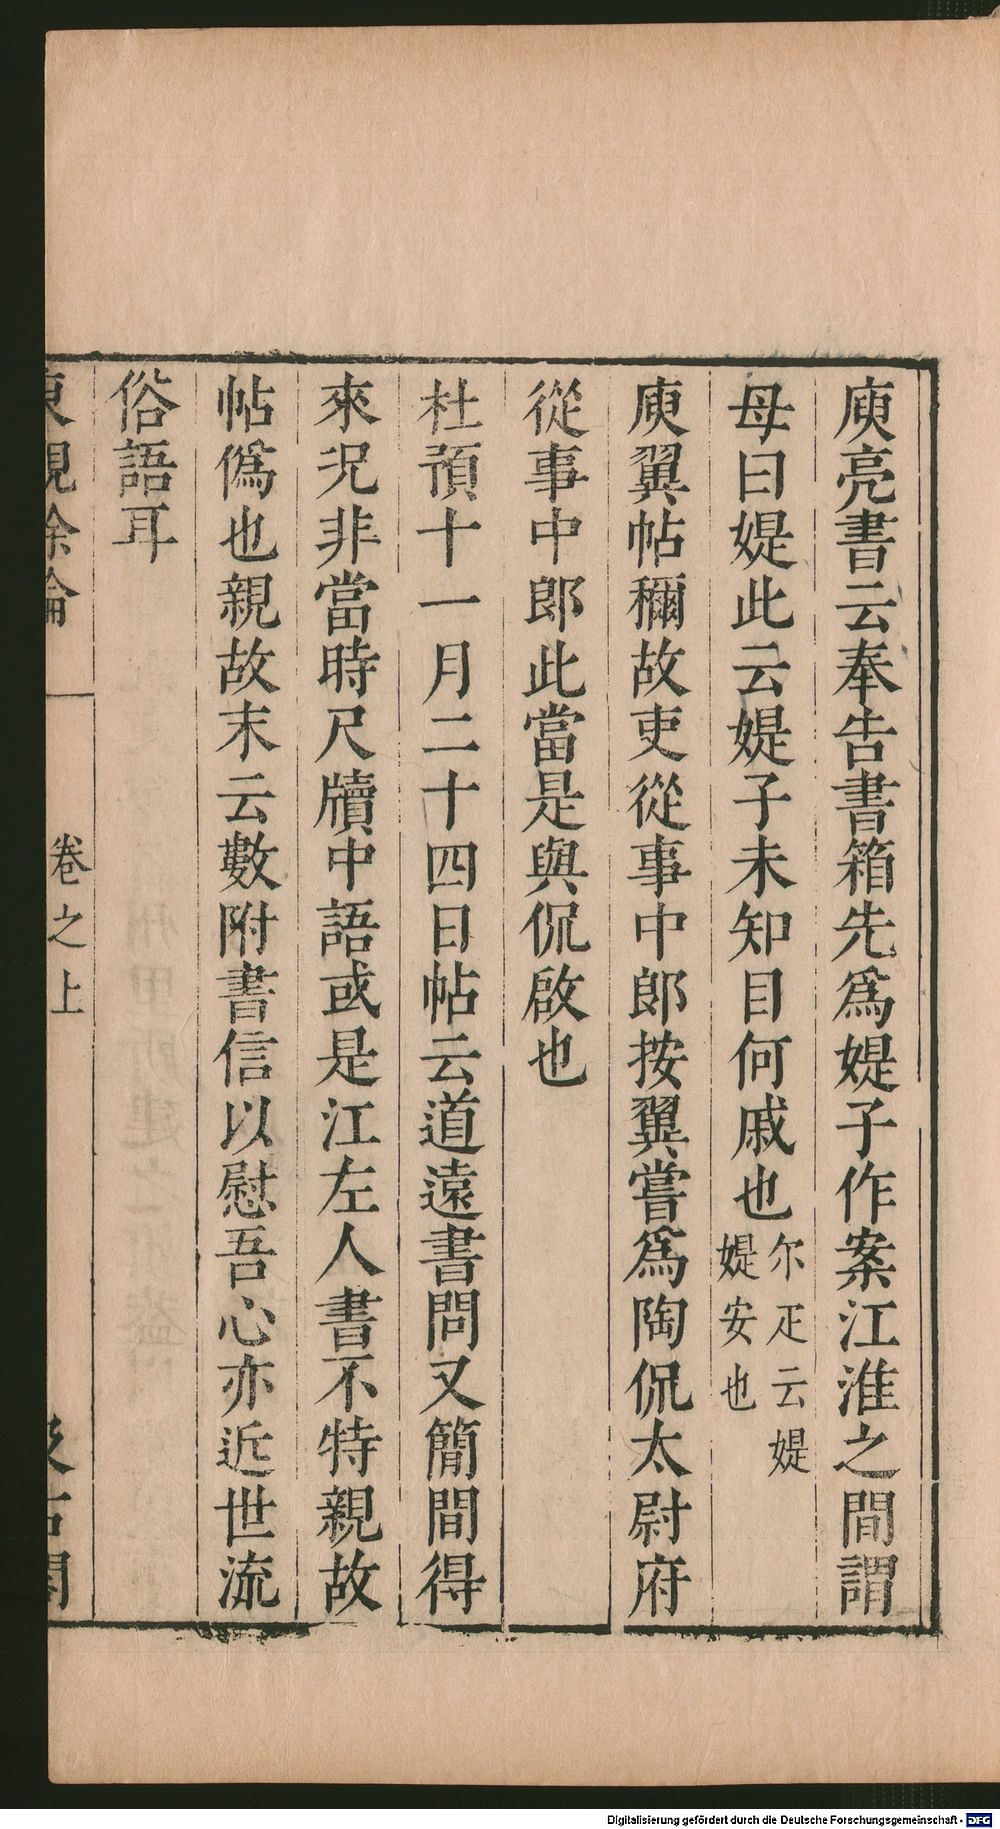 庾亮書云奉告書箱先爲媞子作案江淮之間謂
母曰媞此云媞子未知目何戚也尔疋云媞
媞安也
庾翼帖穪故吏從事中郎按翼嘗爲陶侃太尉府
從事中郎此當是與侃啟也
杜預十一月二十四日帖云道遠書問又簡間得
來況非當時尺牘中語或是江左人書不特親故
帖僞也親故末云數附書信以慰吾心亦近世流
俗語耳
東觀余論
卷之上
汲古閣
Digitalisierung gefördert durch die Deutsche Forschungsgemeinschaft - DFG